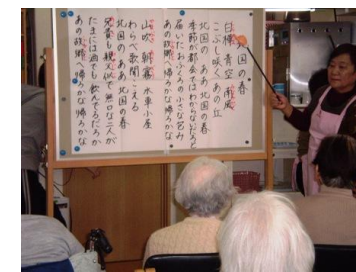 北国の春
白樺 青空 南風
こぶし咲く あの丘
北国の ああ 北国の春
季節が都会ではわからないだろと
届いたおふくろの小さな包み
あの故郷へ帰ろかな帰ろかな
山吹 朝霧 水車小屋
わらべ歌聞こえる
北国の ああ 北国の春
兄貴も親父似で無口な二人が
たまには酒でも飲んでるだろか
あの故郷へ帰ろかな帰ろかな